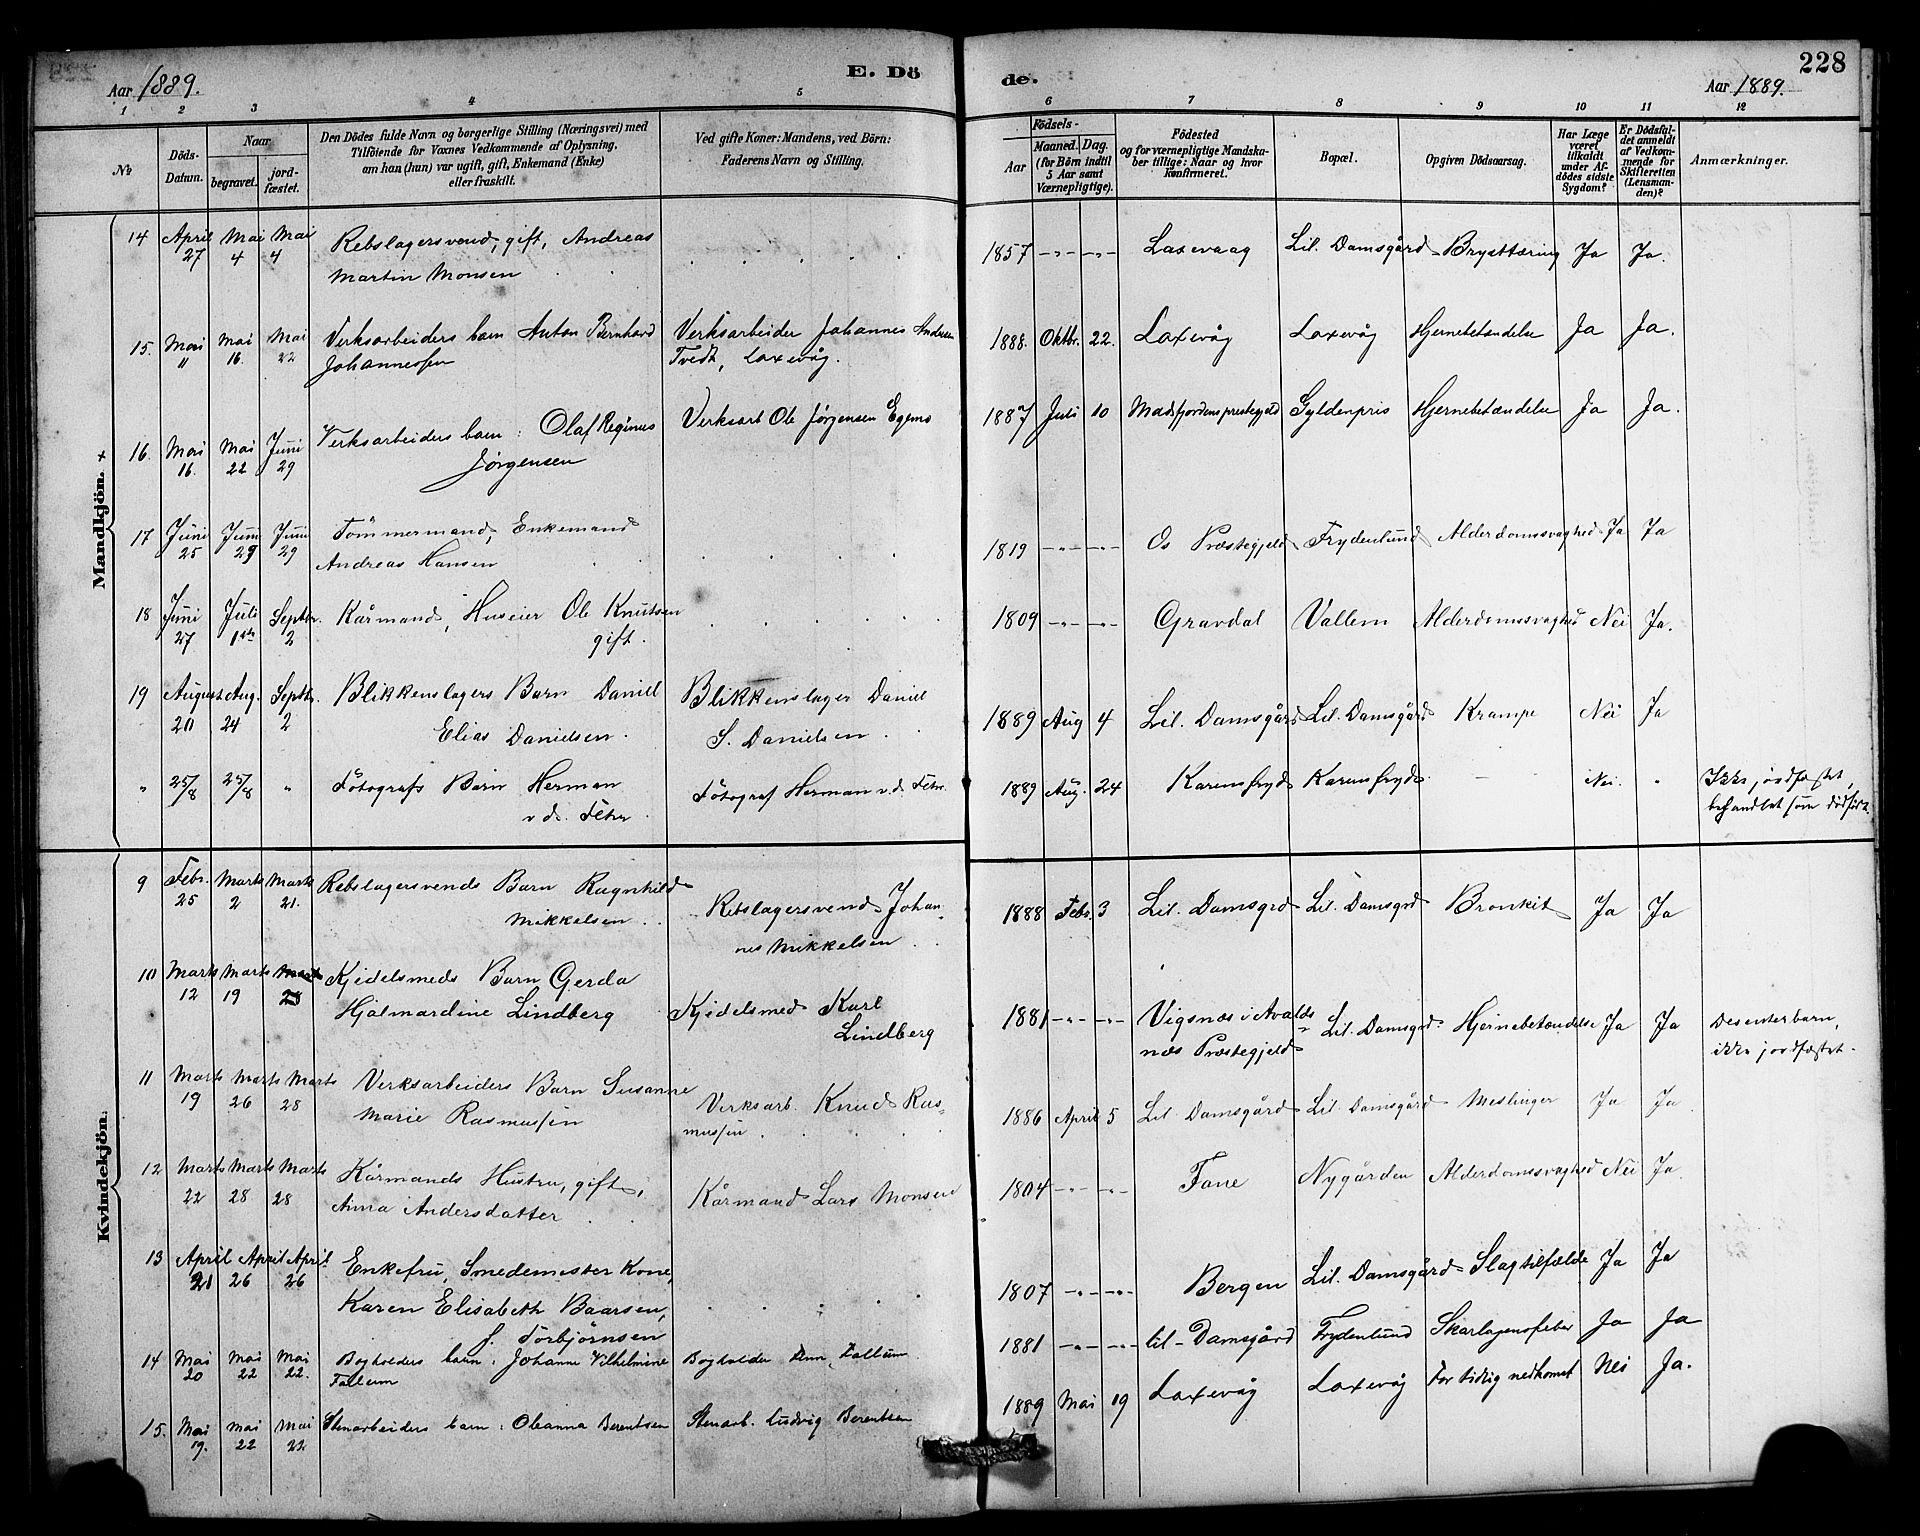 228
Aar 1889.
E. Dö
de.
Aar 1889.
1 2 3 4 5 6 7 8 9 10 11 12
No
Döds-
Datum.
Naar
begravet.
jord-
fæstet.
Den Dödes fulde Navn og borgerlige Stilling (Næringsvei) med
Tilföiende for Voxnes Vedkommende af Oplysning,
om han (hun) var ugift, gift, Enkemand (Enke)
eller fraskilt.
Ved gifte Koner: Mandens, ved Börn:
Faderens Navn og Stilling.
Födsels-
Aar
Maaned. Dag.
(for Börn indtil
5 Aar samt
Værnepligtige).
Födested
og for værnepligtige Mandska-
ber tillige: Naar og hvor
konfirmeret.
Bopæl.
Opgiven Dödsaarsag.
Har Læge
været
tilkaldt
under Af-
dödes sidste
Sygdom?
Er Dödsfal-
det anmeldt
af Vedkom-
mende for
Skifteretten
(Lensman-
den)?
Anmærkninger.
Mandkjön. +
14 April 27 Mai 4 Mai 4 Rebslagersvend, gift, Andreas
Martin Monsen
1857 -"- -"- Laxevaag Lil. Damsgård Brysttæring Ja Ja.
15. Mai 11 Mai 16. Mai 22 Verksarbeiders barn Anton Bernhard
Johannessen
Verksarbeider Johannes Andersen
Tvedt, Laxevåg.
1888. Oktbr. 22. Laxevåg Laxevåg Hjernebetændelse Ja Ja.
16. Mai 16. Mai 22 Juni 29 Verksarbeiders barn: Olaf Reginus
Jørgensen
Verksarb Ole Jørgensen Egenes
1887 Juli 10 Madsfjordens prestegjeld Gyldenpris Hjernebetændelse Ja Ja.
17 Juni 25 Juni 29 Juni 29 Tömmermand, Enkemand
Andreas Hansen
1819 -"- -"- Os Præstegjeld Frydenlund Alderdomssvaghed Ja Ja
18 Juni 27 Juli 1ste Septbr. 2 Kårmand, Huseier Ole Knutsen
gift.
1809 -"- -"- Gravdal Vallem Alderdomssvaghed Nei Ja.
19 August 20 Aug. 24 Septbr. 2 Blikkenslagers Barn Daniel
Elias Danielsen.
Blikkenslager Daniel
S. Danielsen
1889 Aug 4 Lil. Damsgård Lil. Damsgård Krampe Nei Ja
" 25/8 25/8 " Fötografs Barn Herman
v. d. Fehr.
Fötograf Herman v. d. Fehr.
1889 Aug. 24 Karensfryd Karensfryd - Nei. "
Ikke jordfæstet,
behandlet som dödfödt.
Kvindekjön.
9 Febr. 25 Marts 2 Marts 21. Rebslagersvends Barn Ragnhild
Mikkelsen
Rebslagersvend Johan-
nes Mikkelsen
1888 Febr. 3 Lil. Damsgrd Lil. Damsgrd Bronkit Ja Ja
10 Marts 12 Marts 19 Marts 28 Kjedelsmeds Barn Gerda
Hjalmardine Lindberg
Kjedelsmed Karl
Lindberg
1881 -"- -"- Vigsnæs i Avalds-
næs Præstegjeld
Lil. Damsgrd. Hjernebetændelse Ja Ja
Desenterbarn,
ikke jordfæstet.
11 Marts 19 Marts 26 Marts 28 Verksarbeiders Barn Susanne
Marie Rasmussen
Verksarb. Knud Ras-
mussen
1886 April 5 Lil Damsgård Lil. Damsgård Meslinger Ja Ja
12 Marts 22 Marts 28 Marts 28 Kårmands Hustru, gift,
Anna Andersdatter
Kårmand Lars Monsen
1804 -"- -"- Fane Nygården Alderdomssvaghed Nei Ja
13 April 21 April 26 April 26 Enkefru, Smedemester Kone,
Karen Elisabeth Baarsen,
f. Torbjørnsen
1807 -"- -"- Bergen Lil. Damsgård Slagtilfælde Ja Ja
14 Mai 20 Mai 22 Mai 22. Bogholders barn: Johanne Vilhelmine
Fallum
Bogholder Fallum
1881 -"- -"- lil-Damsgård Frydenlund Skarlagensfeber Ja Ja
15. Mai 19. Mai 22 Mai 22 Stenarbeiders barn: Oleanna Berentsen
Stenarb. Ludvig Berentsen
1889 Mai 19 Laxevåg Laxevåg For tidlig nedkomst Nei Ja.